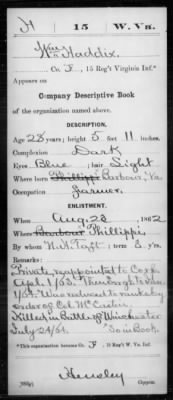 H 15 W. Va.
Wm Haddix
....., Co. F, 15 Reg't Virginia Inf.*
Appears on
Company Descriptive Book
of the organization named above.
DESCRIPTION.
Age 28 years; height 5 feet 11 inches.
Complexion Dark
Eyes Blue; hair Light
Where born Phillippi Barbour, Va.
Occupation Farmer.
ENLISTMENT.
When Aug. 28, 1862
Where Barbour Phillippi
By whom N. H. Taft; term 3 y'rs.
Remarks:
Private, reappointed to Corp
Apl. 1/63. Then Serg't to
1/64. Was reduced to ranks by
order of Col. McCaslin.
Killed in Battle of Winchester
July 24/64. So in Book.
*This organization became Co. F, 15 Reg't W. Virginia Inf.
Hensley
(383g) Copyist.